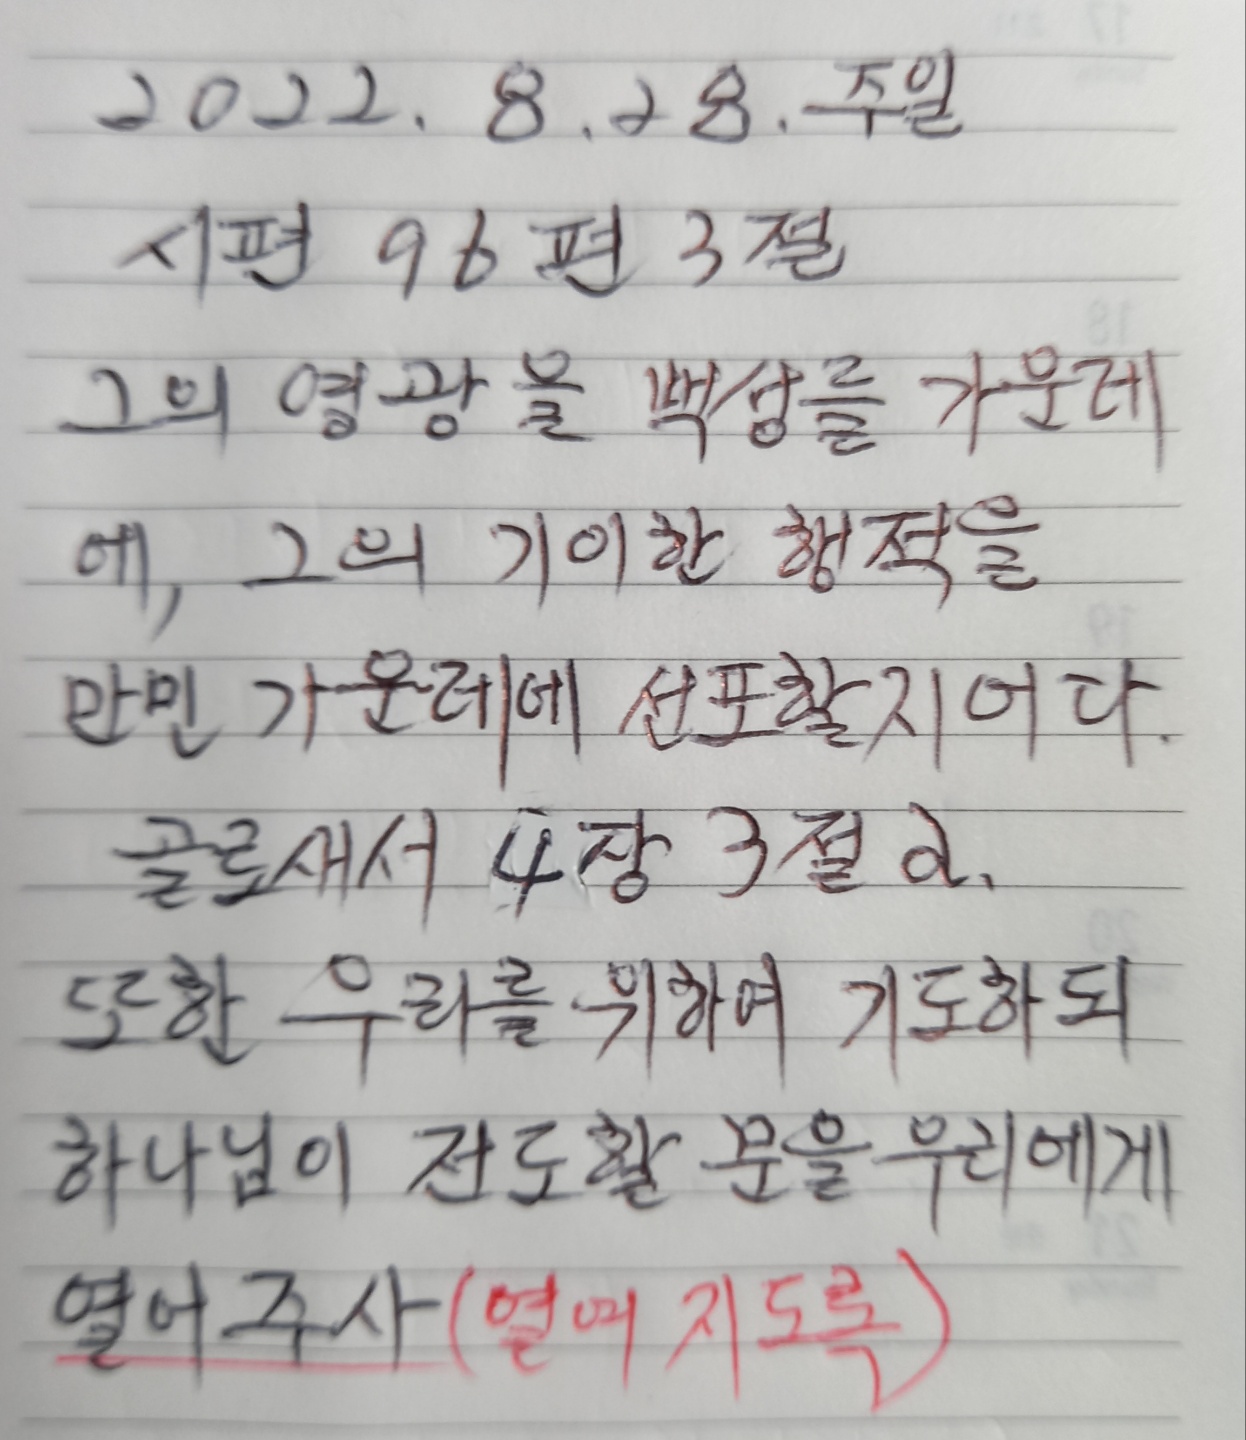 2022. 8. 28. 주일
시편 96편 3절
그의 영광을 백성를 가운데
에, 그의 기이한 행적을
만민 가운데에 선포할지어다.
골로새서 4장 3절 a.
또한 우리를 위하여 기도하되
하나님이 전도할 문을 우리에게
열어 주사 (열여 지도록)